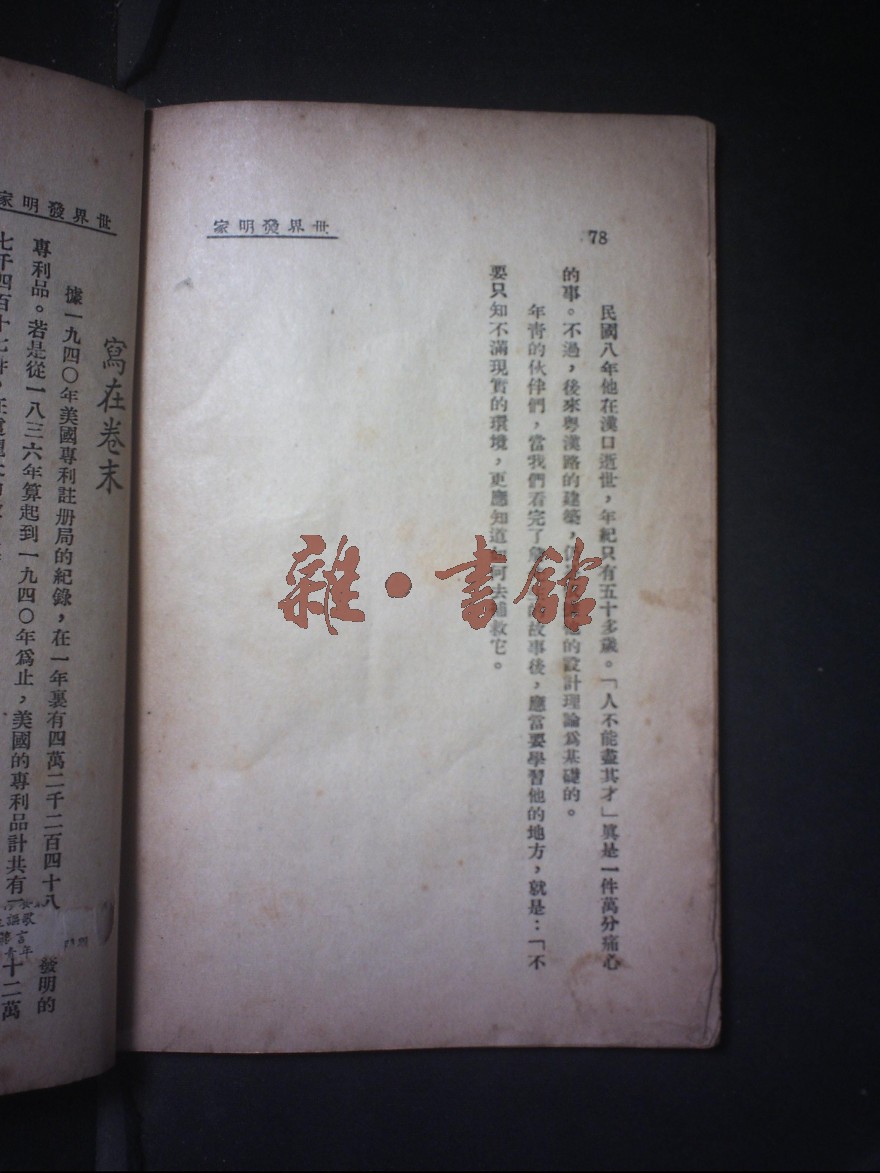 78
世界發明家
民國八年他在漢口逝世，年紀只有五十多歲。「人不能盡其才」眞是一件萬分痛心
的事。不過，後來粵漢路的建築，他的設計理論爲基礎的。
年青的伙伴們，當我們看完了的故事後，應當要學習他的地方，就是：「不
要只知不滿現實的環境，更應知道何去救它。
雜·書館
世界發明家
寫在卷末
據一九四〇年美國專利註册局的紀錄，在一年裏有四萬二千二百四十八發明的
專利品。若是從一八三六年算起到一九四〇年爲止，美國的專利品計共有十二萬
七千四百十七件，在